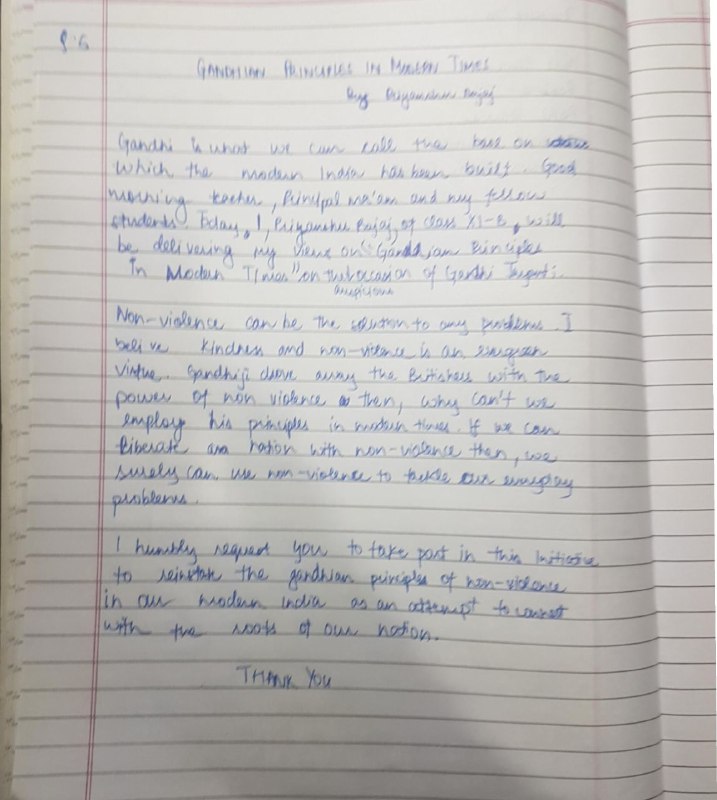 Q.6
GANDHIAN PRINCIPLES IN MODERN TIMES
By Priyanshu Bajaj
Gandhi is what we can call the base on
which the modern India has been built. Good
morning teacher, Principal ma'am and my fellow
students. Today, I, Priyanshu Bajaj, of class XI-E, will
be delivering my views on "Gandhian Principles
In Modern Times" on the occasion of Gandhi Jayanti.
auspicious
Non-violence can be the solution to any problems. I
belive kindness and non-violence is an evergreen
virtue. Gandhiji drove away the Britishers with the
power of non violence then, why can't we
employ his principles in modern times. If we can
liberate a nation with non-violence then, we
surely can use non-violence to tackle our everyday
problems.
I humbly request you to take part in this initiative
to reinstate the gandhian principles of non-violence
in our modern india as an attempt to connect
with the roots of our nation.
THANK YOU